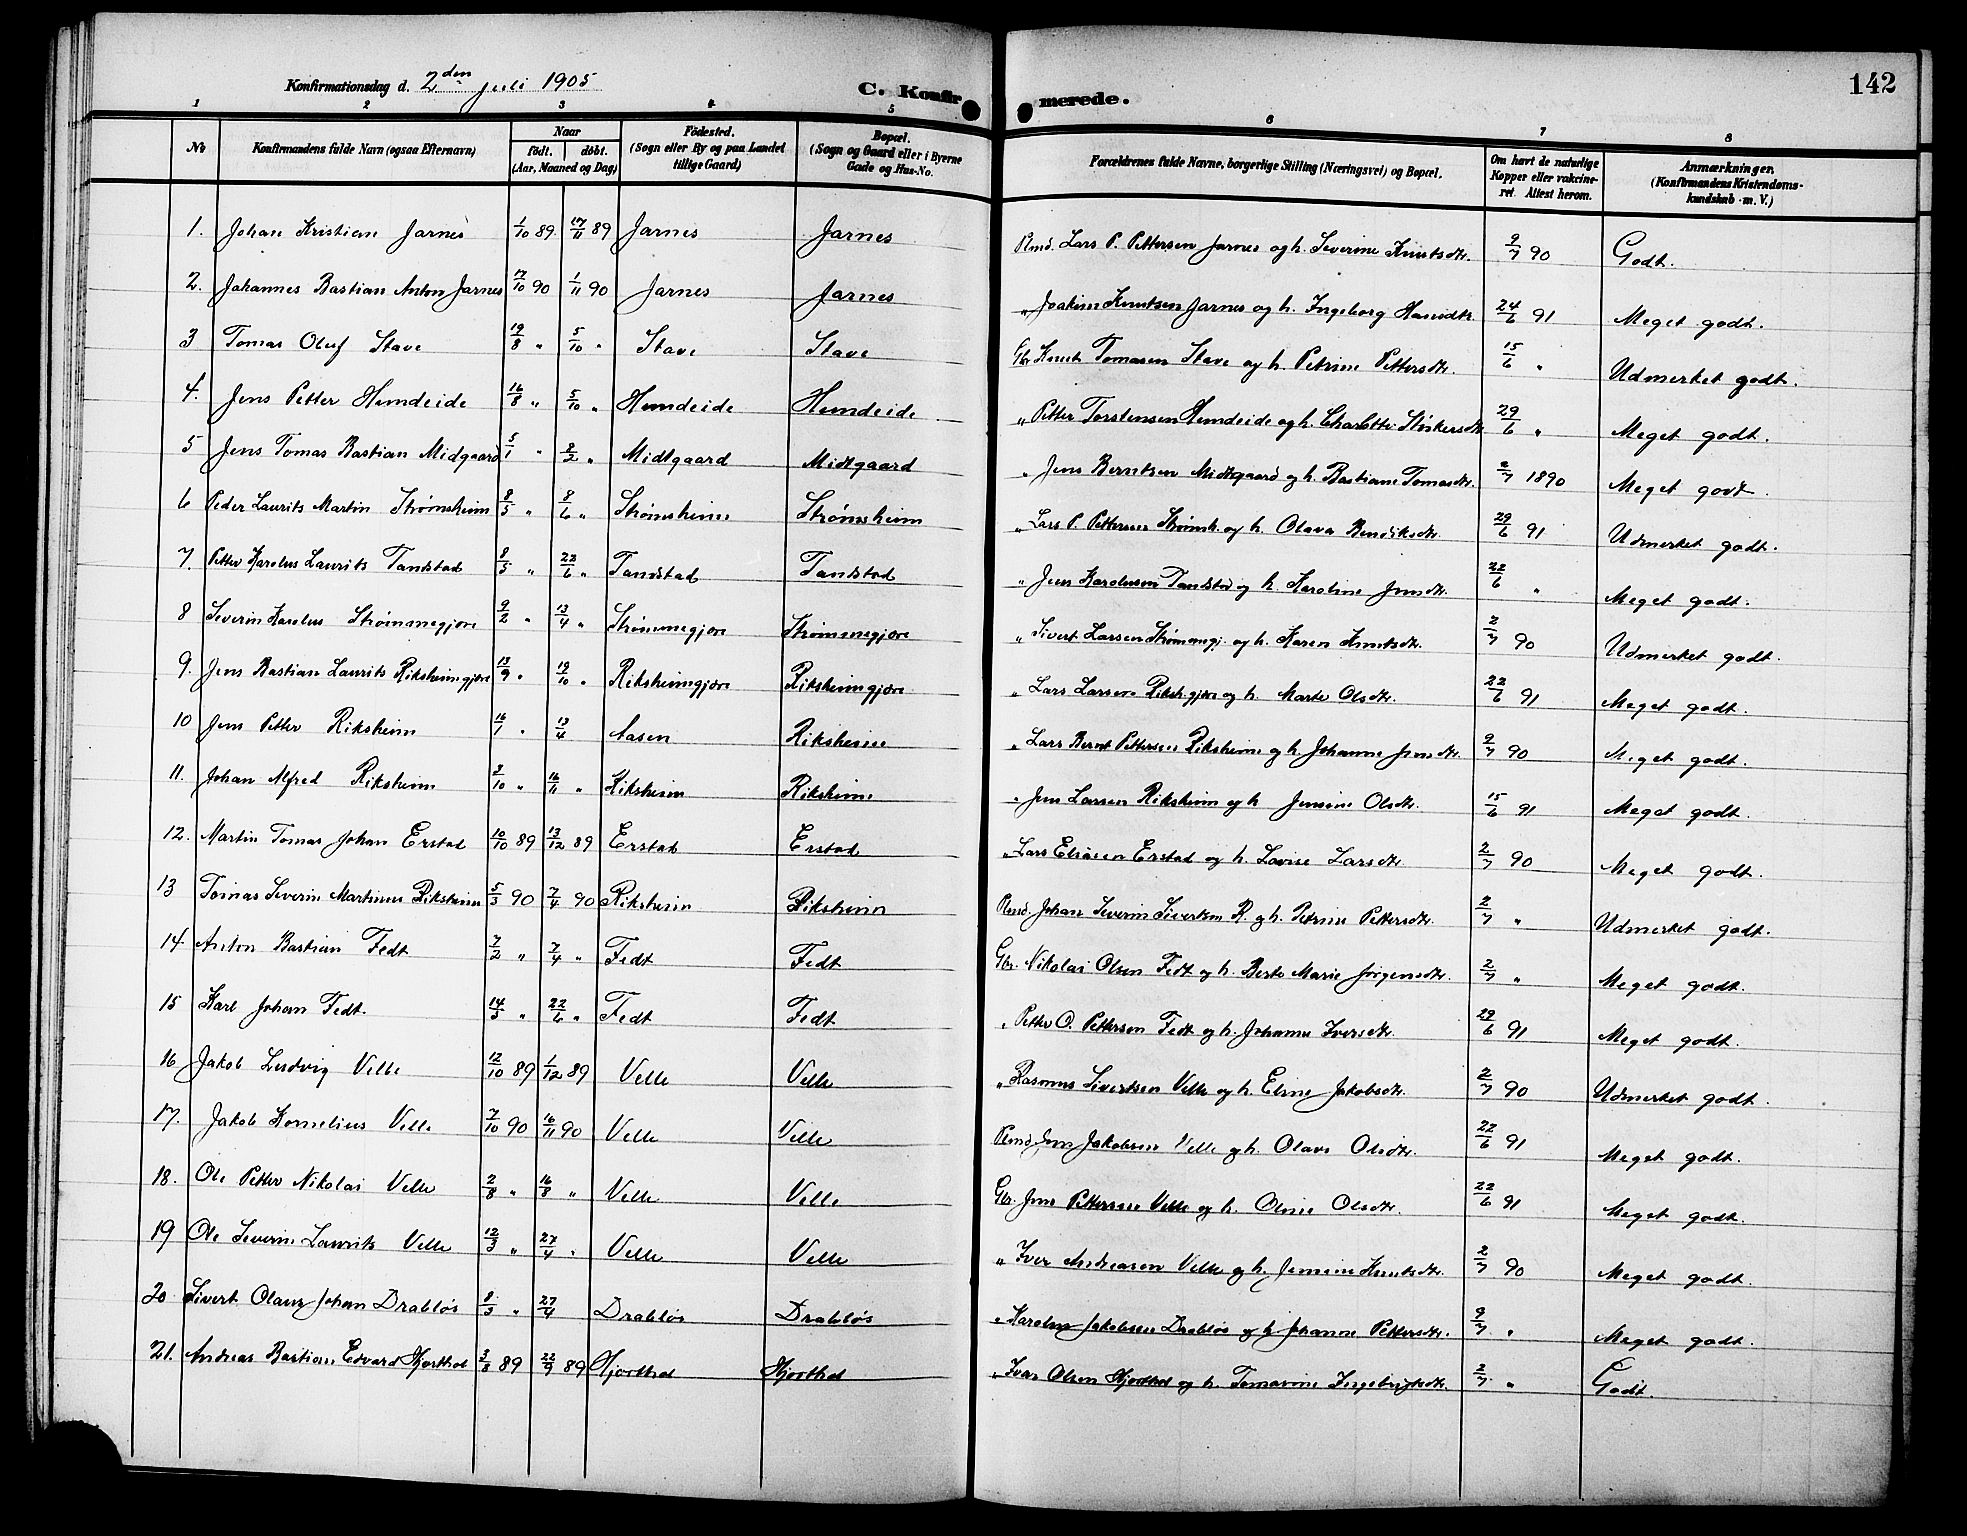 Konfirmationsdag d. 2den juli 1905
C. Konfirmerede.
142
1 2 3 4 5 6 7 8
No
Konfirmandens fulde Navn (ogsaa Efternavn)
Naar
født. døbt.
(Aar, Maaned og Dag)
Födested.
(Sogn eller By og paa Landet
tillige Gaard)
Bopæl.
(Sogn og Gaard eller i Byerne
Gade og Hus-No.
Forældrenes fulde Navne, borgerlige Stilling (Næringsvei) og Bopæl.
Om havt de naturlige
Kopper eller vakcine-
ret. Attest herom.
Anmærkninger.
(Konfirmandens Kristendoms-
kundskab m. V.)
1. Johan Kristian Jarnes 1/10 89 17/11 89 Jarnes Jarnes Rmd. Lars P. Pettersen Jarnes og h. Severine Knutsdtr. 2/7 90 Godt.
2. Johannes Bastian Anton Jarnes 7/10 90 1/11 90 Jarnes Jarnes " Joakim Knutsen Jarnes og h. Ingeborg Hansdtr. 24/6 91 Meget godt.
3 Tomas Oluf Stave 19/8 " 5/10 " Stave Stave Gbr Knut Tomasen Stave og h. Petrine Pettersdtr. 15/6 " Udmerket godt.
4. Jens Petter Hundeide 16/8 " 5/10 " Hundeide Hundeide " Petter Torstensen Hundeide og h. Charlotte 29/6 " Meget godt.
5 Jens Tomas Bastian Midgaard 5/1 " 2/2 " Midtgaard Midtgaard " Jens Berntsen Midtgaard og h. Bastiane Tomasdtr. 2/7 1890 Meget godt.
6 Peder Laurits Martin Strømsheim 8/5 " 8/6 " Strømsheim Strømsheim " Lars P. Pettersen Strømsh. og h. Olava Bendiksdtr. 29/6 91 Udmerket godt.
7. Petter Karolus Laurits Tandstad 8/5 " 22/6 " Tandstad Tandstad " Jens Karolusen Tandstad og h. Karoline Jensdtr. 22/6 " Meget godt.
8 Severin Karolus Strømmegjære 9/2 " 13/4 " Strømmegjære Strømmegjære " Sivert Larsen Strømmegj. og h. Karen Knutsdtr. 2/7 90 Udmerket godt.
9. Jens Bastian Laurits Riksheimgjære 13/9 " 19/10 " Riksheimgjære Riksheimgjære " Lars Larsen Riksh.gjære og h. Marte Olsdtr. 22/6 91 Meget godt.
10 Jens Petter Riksheim " 13/4 Aasen Riksheim " Lars Bernt Pettersen Riksheim og h. Johanne Jensdtr. 2/7 90 Meget godt.
11. Johan Alfred Riksheim " 16/11 " Riksheim Riksheim " Jens Larsen Riksheim og h. Jensine Olsdtr. 15/6 91 Meget godt.
12. Martin Tomas Johan Erstad 10/10 89 13/12 89 Erstad Erstad " Lars Eliasen Erstad og h. Lovise Larsdtr. 2/7 90 Meget godt.
13 Tomas Severin Martinus Riksheim 5/3 90 7/4 90 Riksheim Riksheim Rmd. Johan Severin Sivertsen R. og h. Petrine Pettersdtr. 2/7 " Udmerket godt.
14 Anton Bastian Fedt 7/2 " 7/4 " Fedt Fedt Gbr. Nikolai Olsen Fedt og h. Berte Marie Jørgensdtr. 2/7 " Meget godt.
15 Karl Johan Fedt. 14/3 " 22/6 " Fedt Fedt " Petter O. Pettersen Fedt og h. Johanne Iversdtr. 29/6 91 Meget godt.
16 Jakob Ludvig Velle 12/10 89 1/12 89 Velle Velle " Rasmus Sivertsen Velle og h. Eline Jakobsdtr. 2/7 90 Udmerket godt.
17. Jakob Kornelius Velle 7/10 90 16/11 90 Velle Velle Rmd. Jens Jakobsen Velle og h. Olava Olsdtr. 22/6 91 Meget godt.
18. Ole Petter Nikolai Velle 2/8 " 16/8 " Velle Velle Gbr. Jens Pettersen Velle og h. Oline Olsdtr. 22/6 91 Meget godt.
19 Ole Severin Laurits Velle 12/3 " 27/4 " Velle Velle " Iver Andreasen Velle og h. Jensine Knutsdtr. 2/7 90 Meget godt.
20 Sivert Olaus Johan Drabløs 8/3 " 27/4 Drabløs Drabløs " Karolus Jakobsen Drabløs og h. Johanne Pettersdtr. 2/7 " Meget godt.
21. Andreas Bastian Edvard Hjorthol 3/8 89 22/9 89 Hjorthol Hjorthol " Ivar Olsen Hjorthol og h. Tomasine Ingebrigtsdtr. 2/7 " Godt.